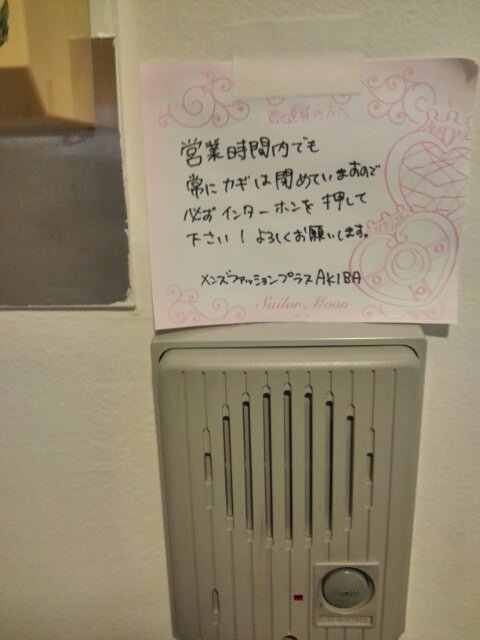 配達員の方へ
営業時間内でも
常にカギは閉めていますので
必ずインターホンを押して
下さい！よろしくお願いします。
メンズファッションプラスAKIBA
Sailor Moon